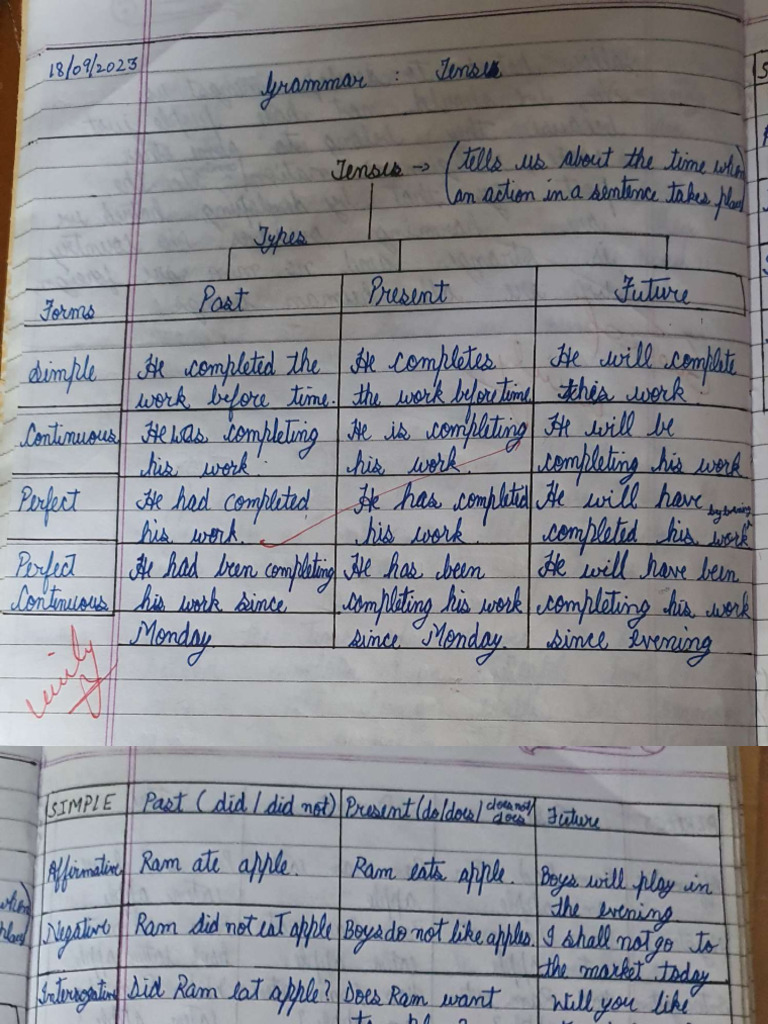 18/09/2023
Grammar : Tenses
Tenses → (tells us about the time when
an action in a sentence takes place
Types
Forms Past Present Future
Simple He completed the He completes He will complete
work before time. the work before time this work.
Continuous He was completing He is completing He will be
his work. his work. completing his work
Perfect He had completed He has completed He will have by evening
his work. his work. completed his work
Perfect He had been completing He has been He will have been
Continuous his work since completing his work completing his work
Monday. since Monday. since evening
SIMPLE Past (did / did not) Present (do/does/ does not/ does Future
Affirmative Ram ate apple. Ram eats apple. Boys will play in
the evening
Negative Ram did not eat apple Boys do not like apples. I shall not go to
the market today
Interrogative Did Ram eat apple? Does Ram want Will you like